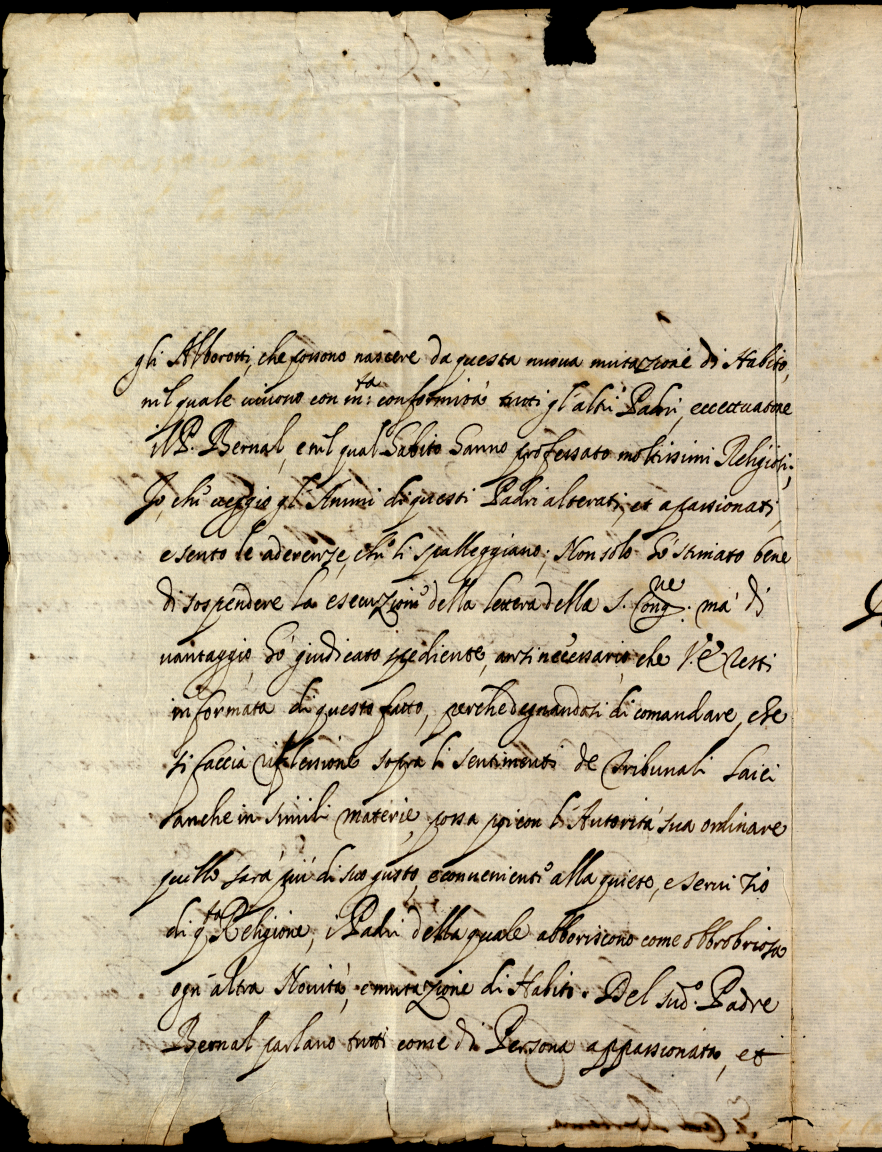 gli Abboroti, che possono nascere da questa nuova mutazione di Habito,
nel quale vivono con m:ta conformità tutti gl'altri Padri, eccettuatone
il P. Bernal, e nel qual' habito hanno professato moltissimi Religiosi;
Io, che veggio gl'Animi di questi Padri alterati, et apassionati,
e sento le aderenze, che li spalleggiano; Non solo hò stimato bene
di sospendere la esecuzione della lettera della S. Congne. mà di
vantaggio hò giudicato spediente, anzi necessario, che V. E. resti
informata di questo fatto, perche degnandosi di comandare, che
si faccia riflessione sopra li sentimenti de Tribunali laici
anche in simili materie, possa poi con l'Autorità sua ordinare
quello sarà più di suo gusto, e conveniente alla quiete, e servizio
di q.ta Religione, i Padri della quale abboriscono come obbrobriosa
ogn'altra Novità, e mutazione di Habito. Del sud.o Padre
Bernal parlano tutti come di Persona appassionata, et